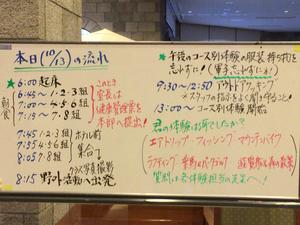 本日(10/13)の流れ
6:00 起床
朝食
6:45〜 1・2・3組
7:00〜 4・5・6組
7:15〜 7・8組
このとき
室長は
健康管理票を
本部へ提出!
7:45 1・2・3組
7:55 4・5・6組
8:05 7・8組
ホテル前
集合して
クラス写真撮影
8:15 野外活動へ出発
午後のコース別体験の服装・持ち物を
忘れずに! (軍手、忘れずに!)
9:30〜12:50 アウトドアクッキング
*スタッフの指示をよく聞き守ること!
13:00〜 コース別体験 開始
君の体験は何でしたか?
エアトリップ・フィッシング・マウンテンバイク
ラフティング
質問は各体験担当の先生へ!